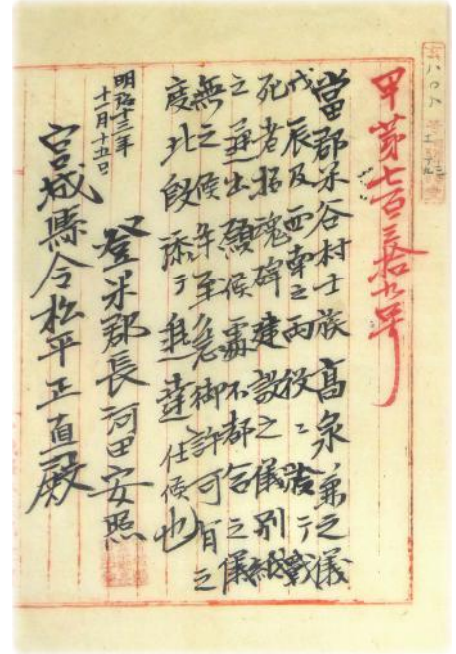 甲第七百三拾九号
當郡米谷村士族高泉兼之儀
戊辰及西南之両役ニ於テ戦
死者招魂碑建設之儀別紙
之通出願候處不都合之儀
無之候条至急御許可有之
度此段添テ進達仕候也
明治十三年
十一月十五日
登米郡長河田安照
宮城縣令松平正直殿